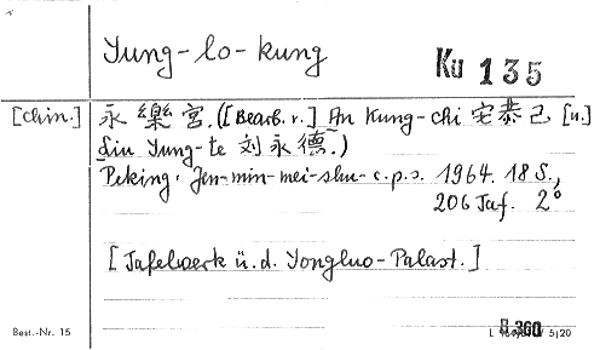 Yung-lo-kung
Ku 135
[Chin.] 永樂宮. ([Bearb. v.] An Kung-chi 安恭己 [u.]
Liu Yung-te 刘永德.)
Peking: Jen-min-mei-shu-c.p.s. 1964. 18 S.,
206 Taf. 2°
[Tafelwerk ü. d. Yongluo-Palast.]
Best.-Nr. 15
8.360 5|20